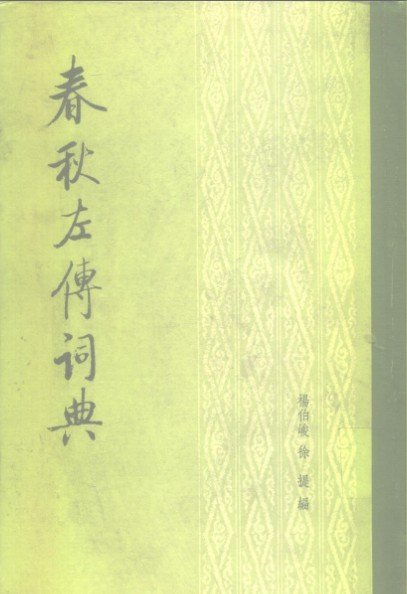 春秋左傳词典
楊伯峻 徐提編